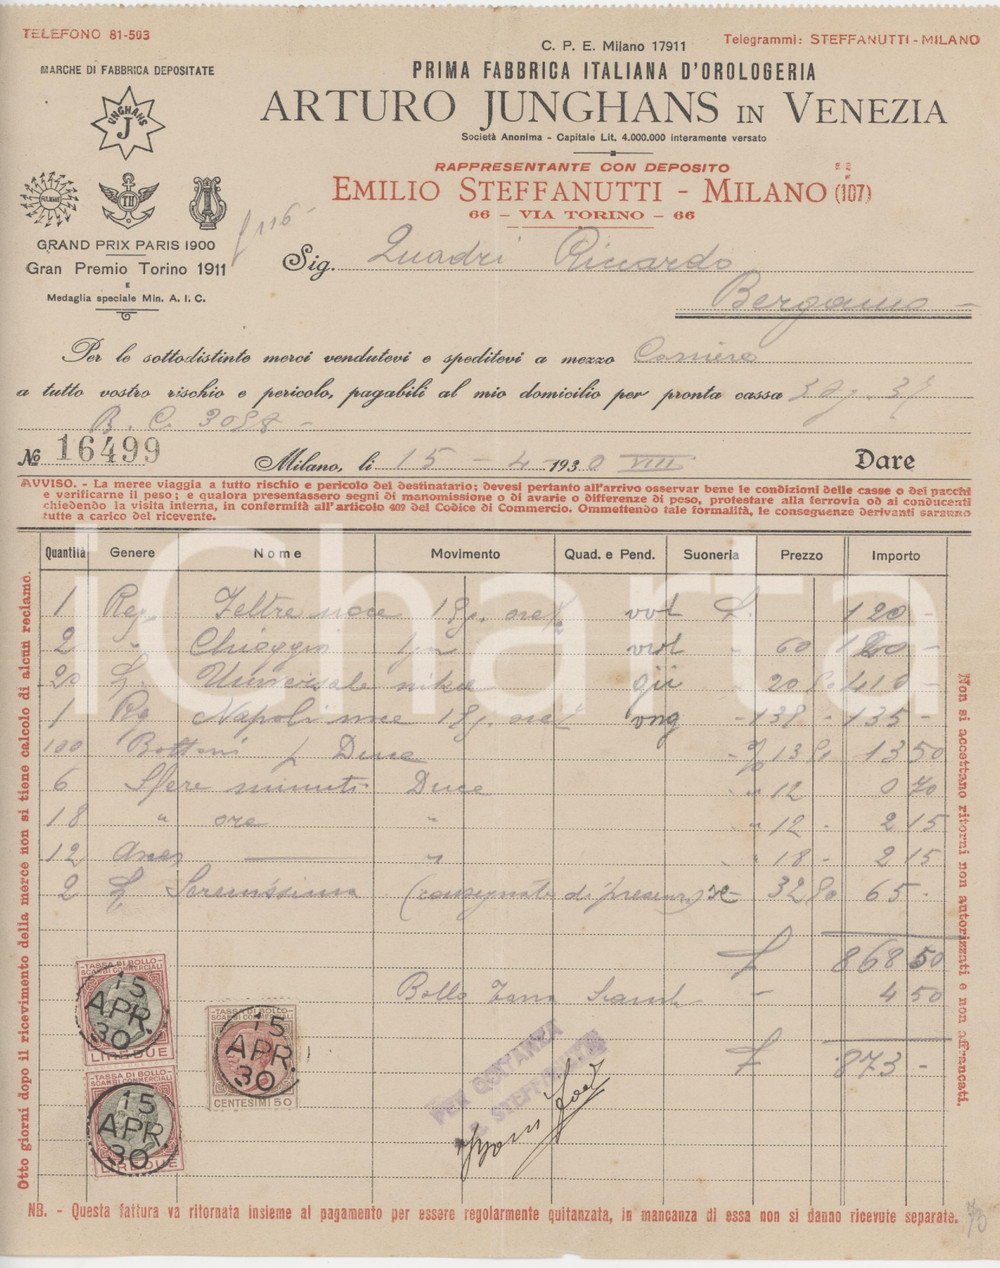 TELEFONO 81-593
C. P. E. Milano 17911
Telegrammi: STEFFANUTTI - MILANO
MARCHE DI FABBRICA DEPOSITATE
JUNGHANS
J
PRIMA FABBRICA ITALIANA D'OROLOGERIA
ARTURO JUNGHANS IN VENEZIA
Società Anonima - Capitale Lit. 4.000.000 interamente versato
RAPPRESENTANTE CON DEPOSITO
EMILIO STEFFANUTTI - MILANO (107)
66 - VIA TORINO - 66
GRAND PRIX PARIS 1900
Gran Premio Torino 1911
E
Medaglia speciale Min. A. I. C.
Sig. Quadri Riccardo
Bergamo -
Per le sottodistinte merci vendutevi e speditevi a mezzo Corriere
a tutto vostro rischio e pericolo, pagabili al mio domicilio per pronta cassa
B. C. 3098 -
No 16499
Milano, li 15 - 4 - 1930 VIII
Dare
AVVISO. - La merce viaggia a tutto rischio e pericolo del destinatario; devesi pertanto all'arrivo osservar bene le condizioni delle casse o dei pacchi
e verificarne il peso; e qualora presentassero segni di manomissione o di avarie o differenze di peso, protestare alla ferrovia od ai conducenti
chiedendo la visita interna, in conformità all'articolo 409 del Codice di Commercio. Ommettendo tale formalità, le conseguenze derivanti saranno
tutte a carico del ricevente.
Quantità Genere Nome Movimento Quad. e Pend. Suoneria Prezzo Importo
1 Reg. Feltre noce 18 g. ore vvol 120 -
2 " Chioggia vvol 60 120 -
20 Universale nikel gii 20 50 410 -
1 Rg Napoli noce 18 g. ore vng 135 - 135 -
100 Bottoni p Duce % 13 50 13 50
6 Sfere minuti Duce " 12 0 70
18 " ore " " 12 - 2 15
12 " " 18 - 2 15
2 Serenissima (consegnate di presenza) 32 50 65 -
£ 868 50
Bollo Tassa Scambi - 4 50
£ 873 -
TASSA DI BOLLO
SCAMBI COMMERCIALI
LIRE DUE
15
APR.
30
TASSA DI BOLLO
SCAMBI COMMERCIALI
CENTESIMI 50
15
APR.
30
TASSA DI BOLLO
SCAMBI COMMERCIALI
LIRE DUE
15
APR.
30
PER QUITANZA
E. STEFFANUTTI
Otto giorni dopo il ricevimento della merce non si tiene calcolo di alcun reclamo.
Non si accettano ritorni non autorizzati e non affrancati.
NB. - Questa fattura va ritornata insieme al pagamento per essere regolarmente quitanzata, in mancanza di essa non si danno ricevute separate.
iCharta